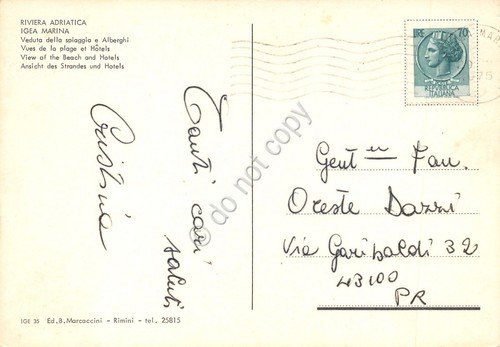 RIVIERA ADRIATICA
IGEA MARINA
Veduta della spiaggia e Alberghi
Vues de la plage et Hôtels
View of the Beach and Hotels
Ansicht des Strandes und Hotels
LIRE 70
REPUBBLICA
ITALIANA
Tanti cari
saluti
Cristina
Gent.en Fam.
Oreste Dazzi
Via Garibaldi 32
43100
PR
IGE 35 Ed. B. Marcaccini - Rimini - tel. 25815
© do not copy